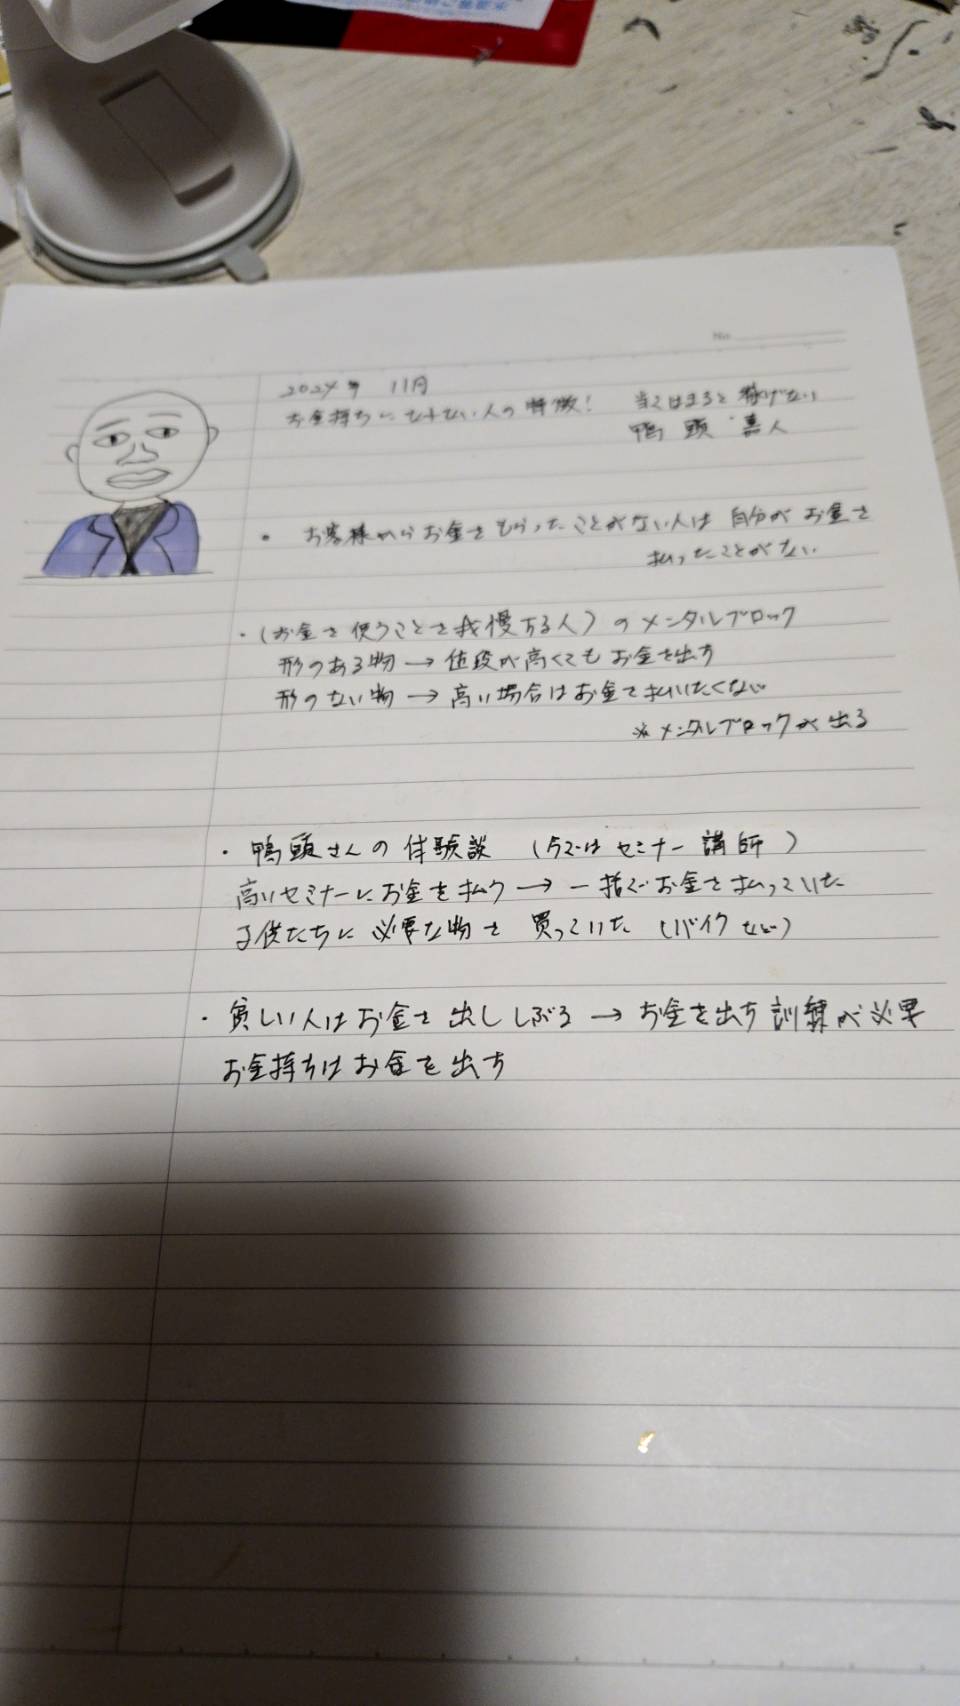 No.
2024年 11月
お金持ちになれない人の特徴! 当てはまると稼げない
鴨頭嘉人
・お客様からお金をもらったことがない人は自分がお金を
払ったことがない
・(お金を使うことを我慢する人)のメンタルブロック
形のある物→値段が高くてもお金を出す
形のない物→高い場合はお金を払いたくない
※メンタルブロックが出る
・鴨頭さんの体験談 (今ではセミナー講師)
高いセミナーにお金を払う→一括でお金を払っていた
子供たちに必要な物を買っていた (バイクなど)
・貧しい人はお金を出ししぶる→お金を出す訓練が必要
お金持ちはお金を出す